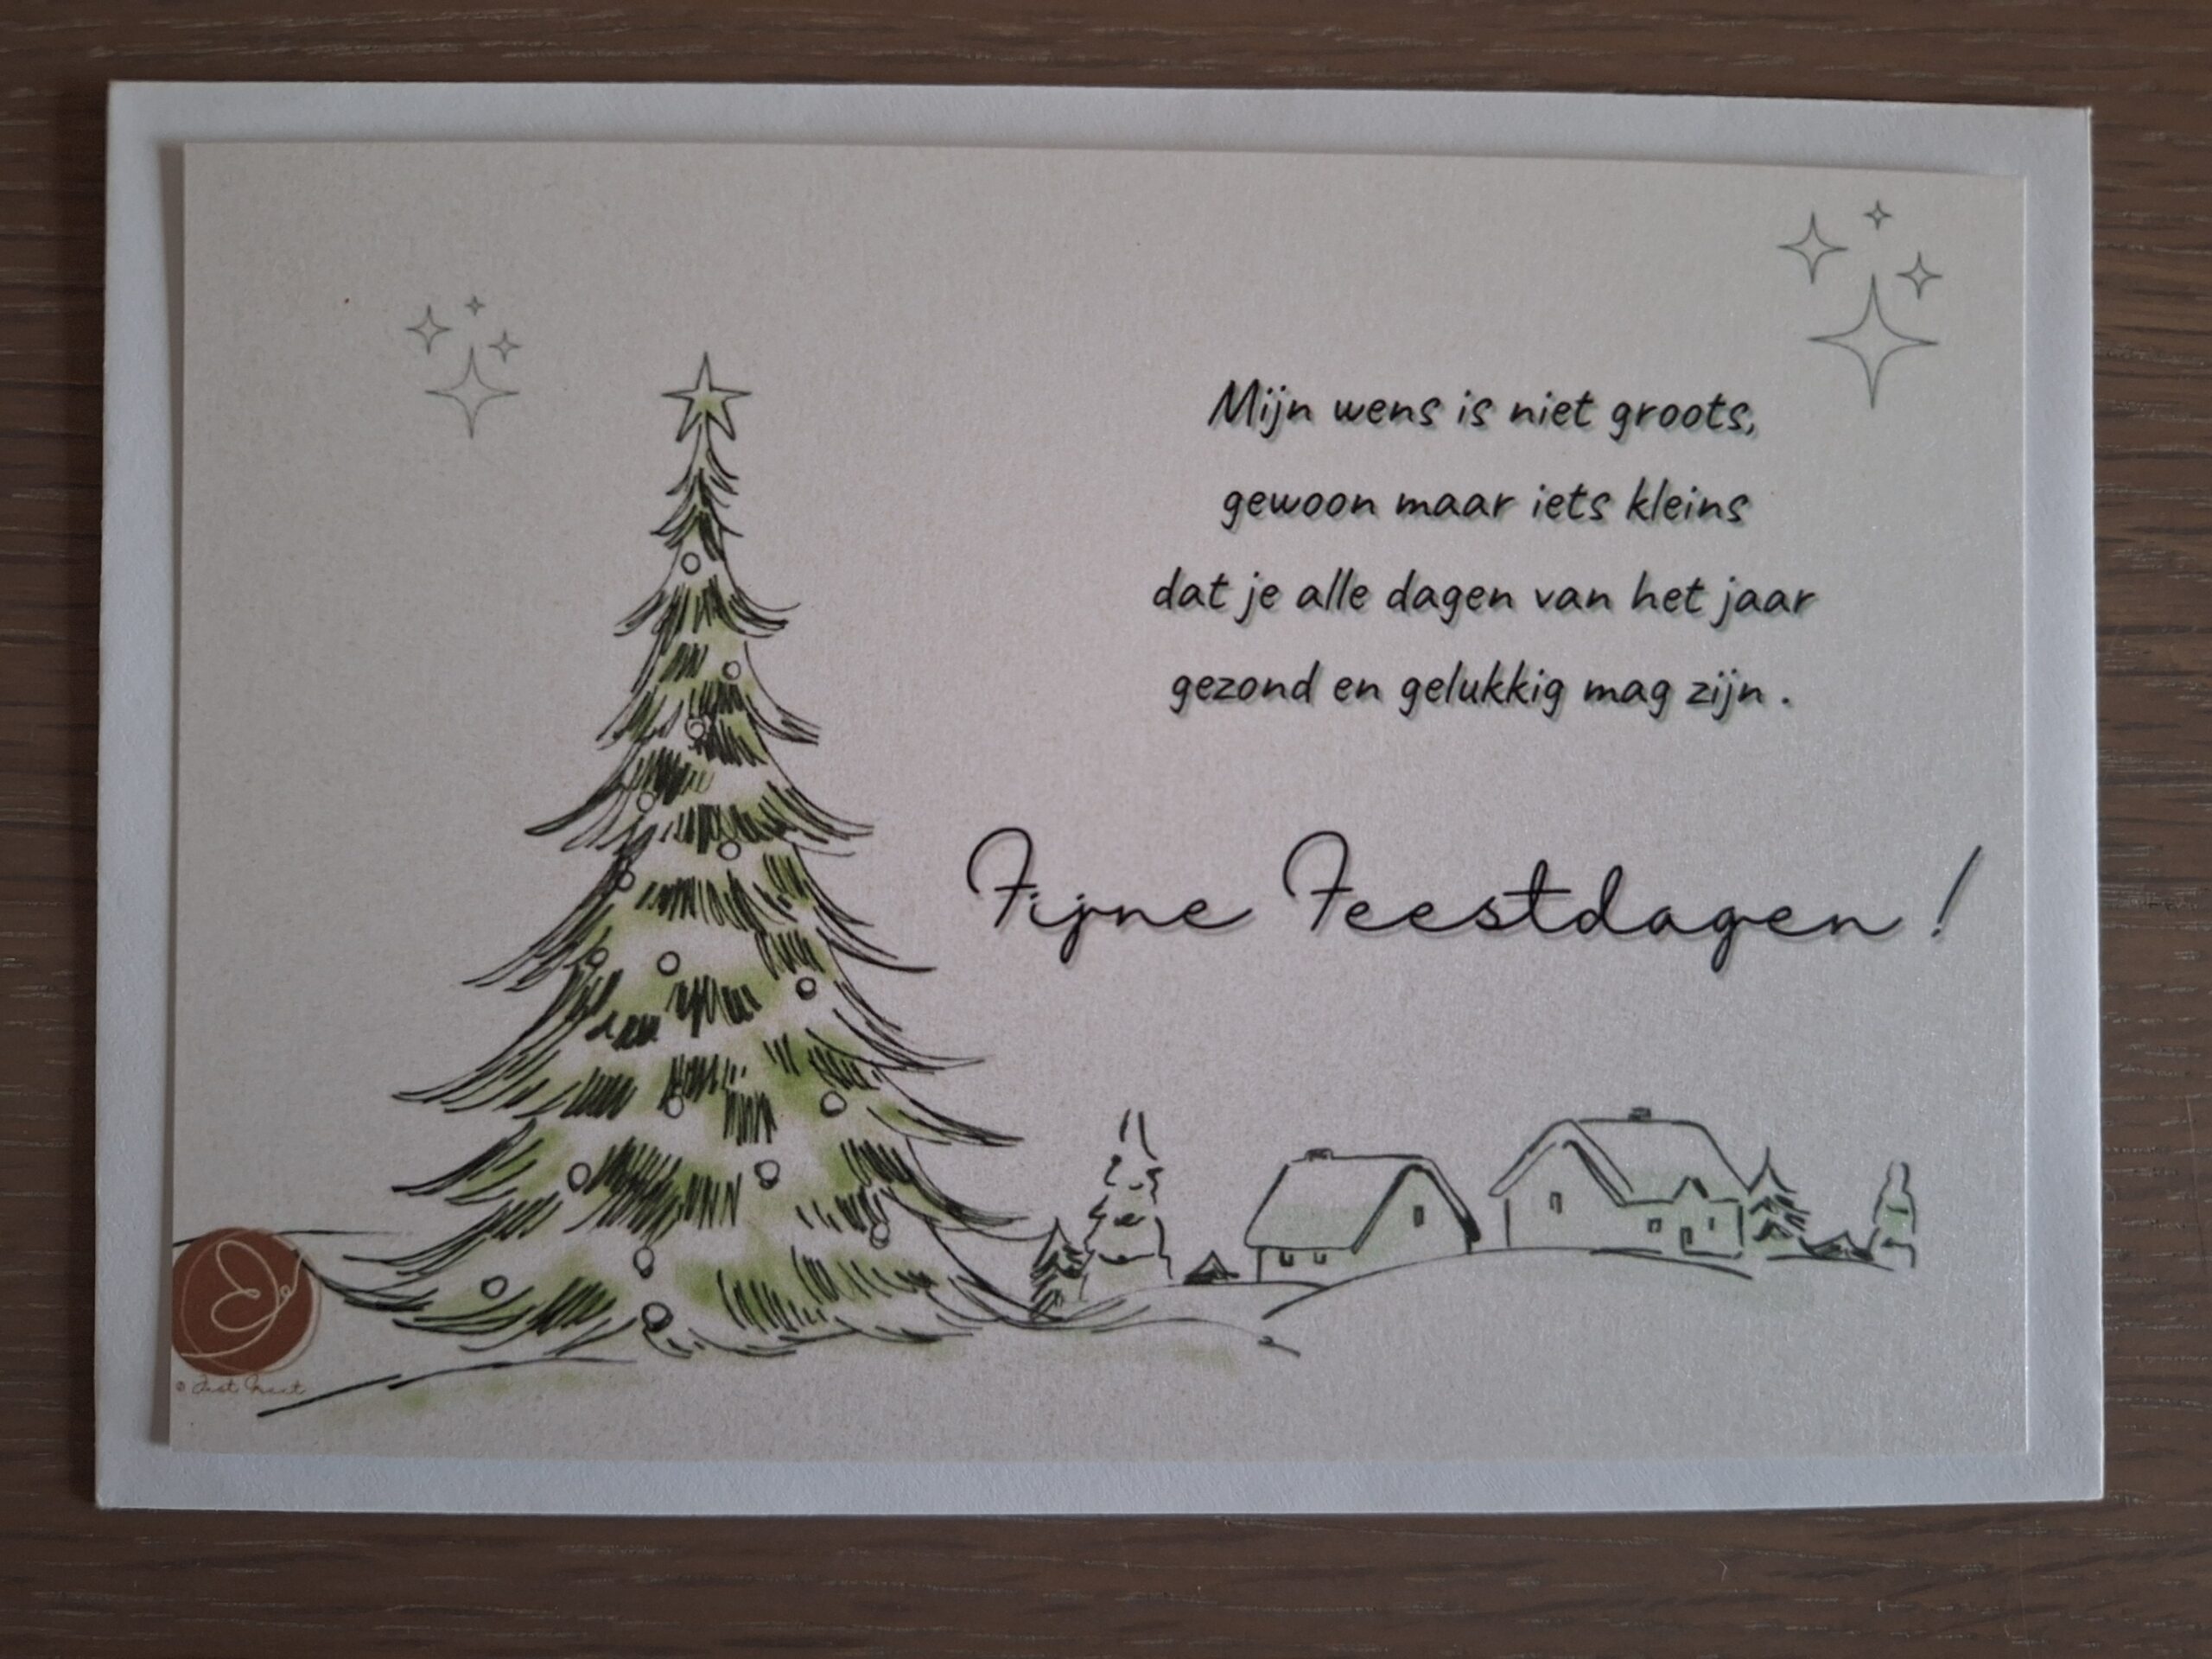 Mijn wens is niet groots,
gewoon maar iets kleins
dat je alle dagen van het jaar
gezond en gelukkig mag zijn .
Fijne Feestdagen !
©